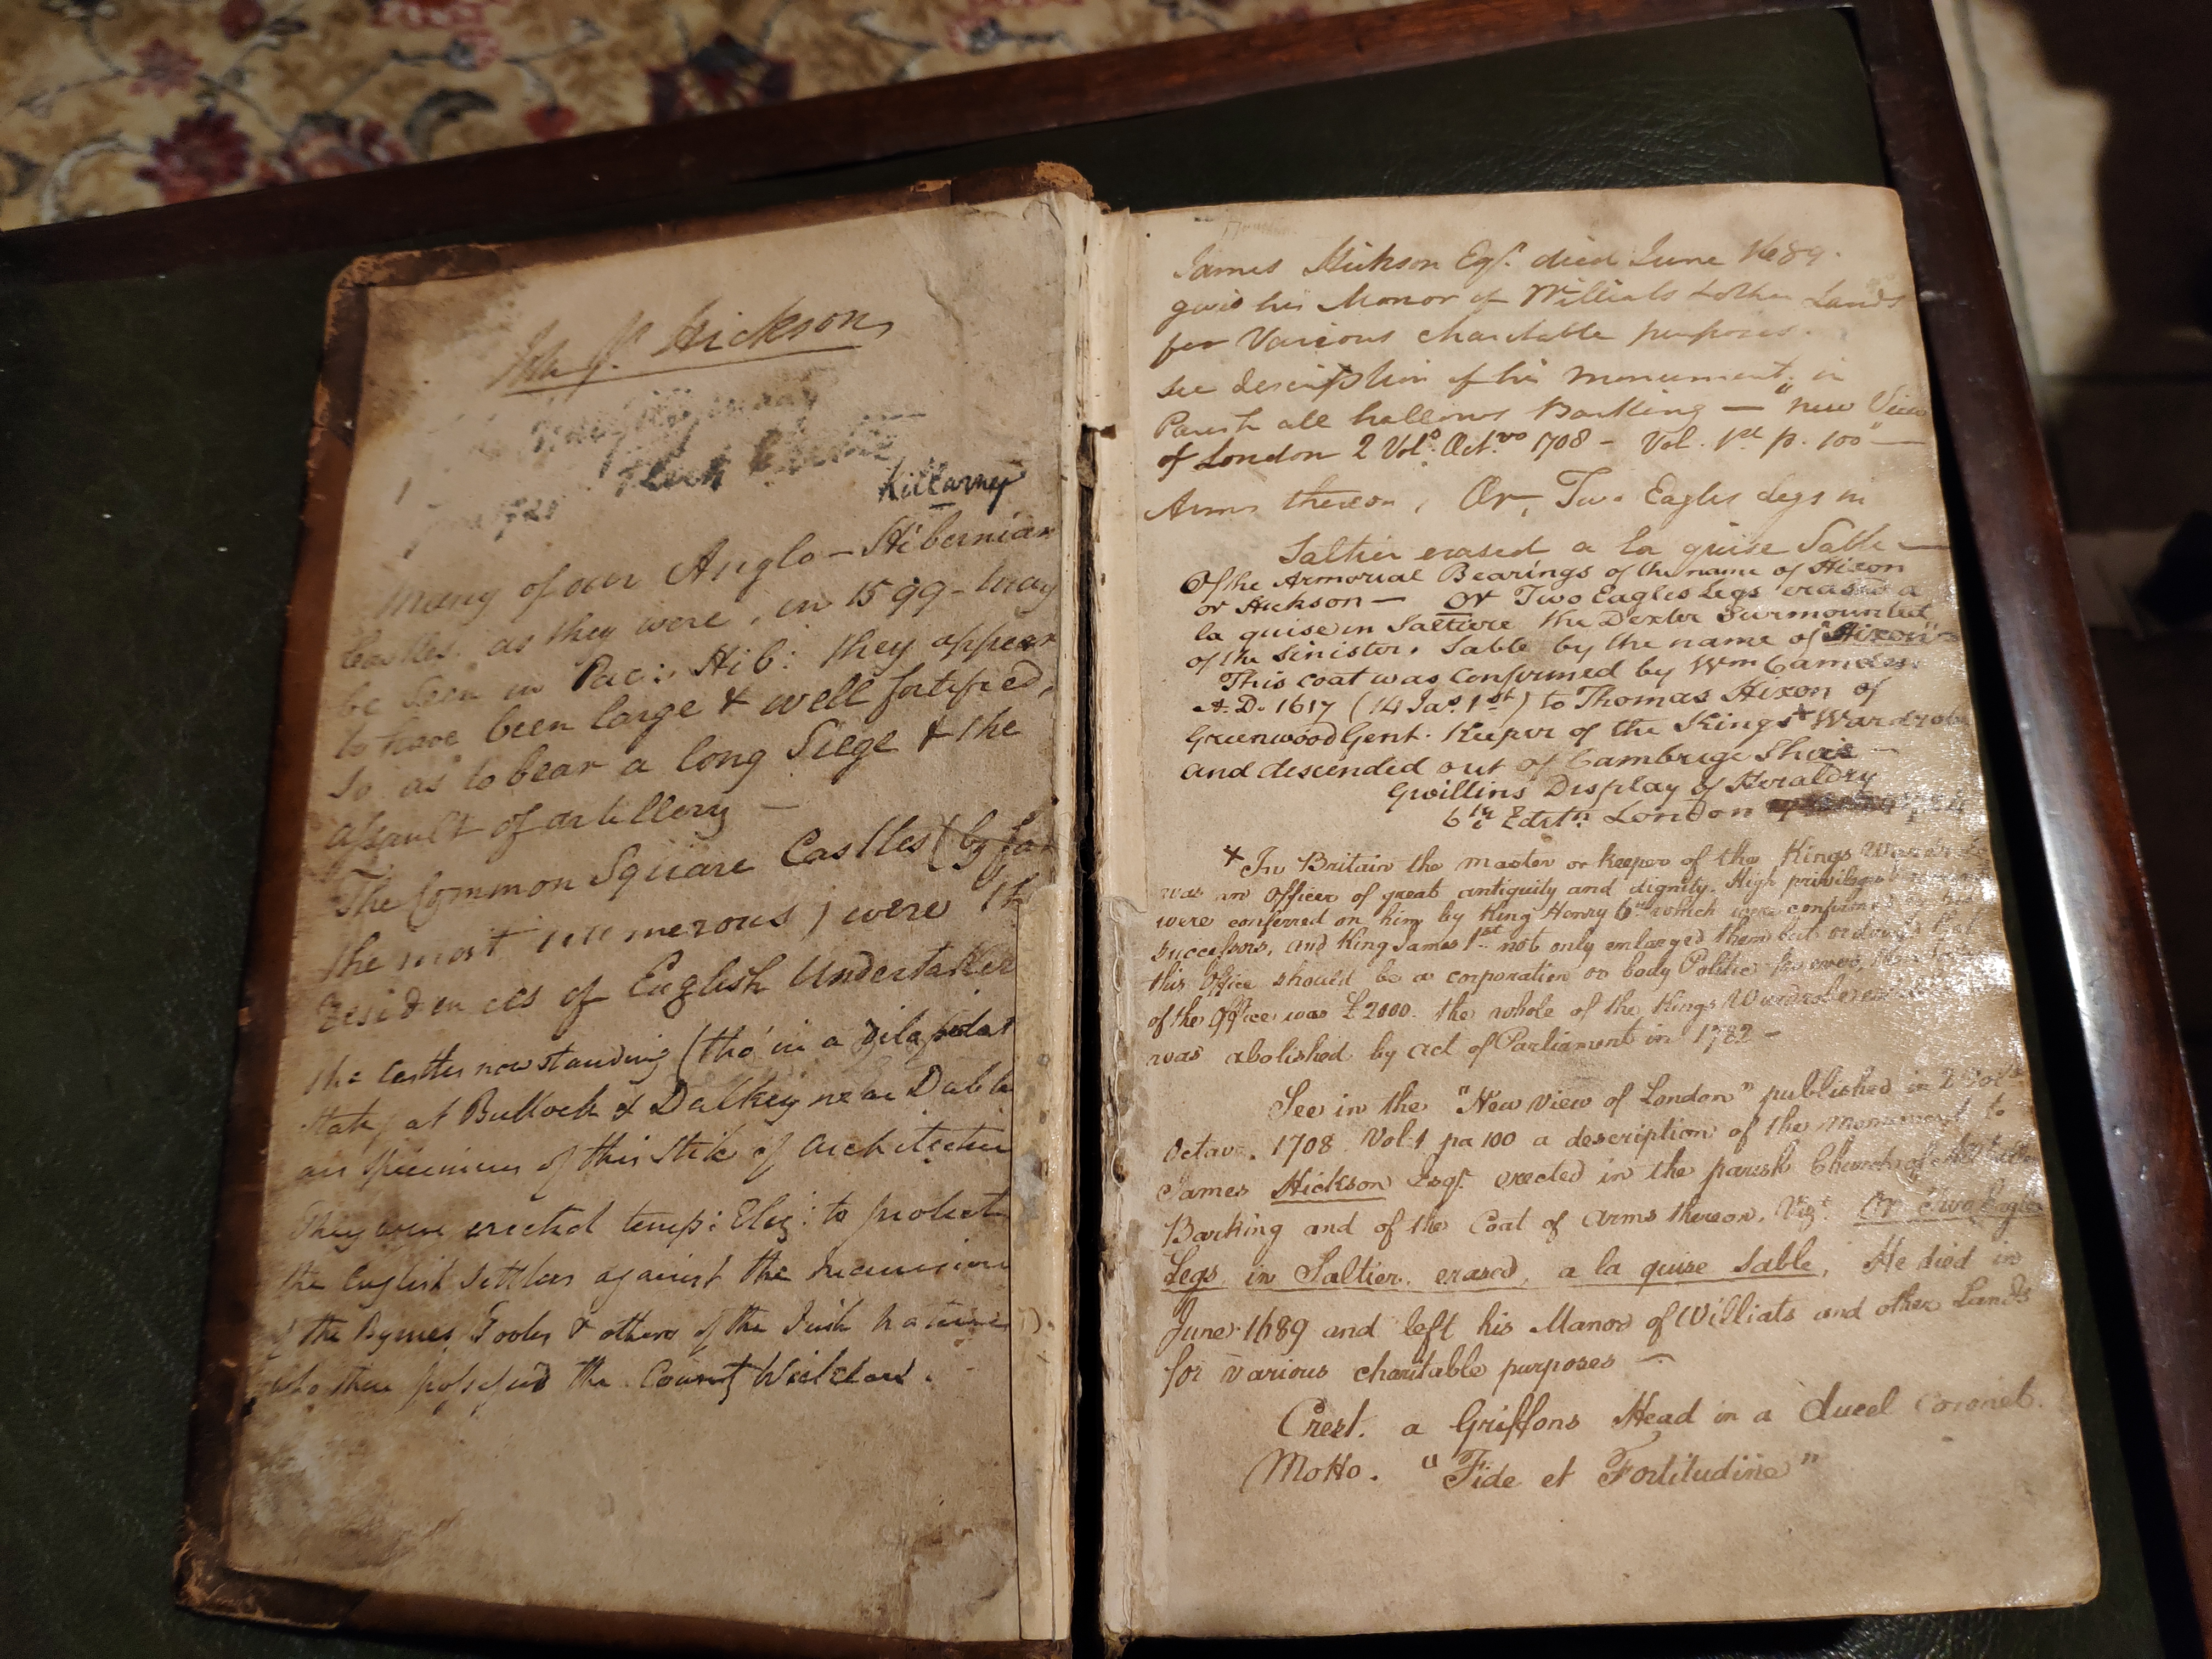 Hickson
Killarney
Many of our Anglo-Hibernian
Castles, as they were, in 1599 - may
be seen in Pac: Hib: they appear
to have been large & well fortified,
so as to bear a long Siege & the
assault of artillery —
The Common Square Castles (by far
the most numerous) were th
residences of English Undertaker
the Castles now standing (tho' in a dilapidat
state) at Bullock & Dalkey near Dubli
are specimens of this Stile of Architectu
They were erected temp: Eliz: to protect
the English Settlers against the incursions
of the Byrnes, Tooles & others of the Irish natives
who then possessed the County Wicklow.
James Hickson Esqr. died June 1689.
gave his Manor of Williats & other Lands
for Various charitable purposes.
see description of his monument, in
Parish all hallows Barking — "new View
of London 2 Vols. Octvo 1708 - Vol. 1st p. 100" —
Arms thereon, Or, Two Eagles Legs in
Saltier erased a la quise Sable —
Of the Armorial Bearings of the name of Hixon
or Hickson — Or Two Eagles Legs erased a
la quise in Saltiere the Dexter Surmounted
of the sinister, Sable by the name of "Hixon"
This coat was confirmed by Wm Camden
A.D. 1617 (14 Jas. 1st) to Thomas Hixon of
Greenwood Gent. Keeper of the Kings + Wardrobe
and descended out of Cambrige Shire —
Gwillins Display of Heraldry
6th Editn. London
+ In Britain the master or keeper of the Kings Wardrobe
was an Officer of great antiquity and dignity. High privileges
were conferred on him by King Henry 6th which were confirmed
successors, and King James 1st not only enlarged them but ordained that
this Office should be a corporation or body Politic for ever,
of the Office was £2000. the whole of the Kings Wardrobe
was abolished by act of Parliament in 1782 —
See in the "New view of London" published in 2 Vols
Octavo. 1708. Vol. 1 pa 100 a description of the monument to
James Hickson Esqr. erected in the parish Church of
Barking and of the Coat of Arms thereon, Vizt. Or Two Eagles
Legs in Saltier, erased, a la quise Sable, He died in
June 1689 and left his Manor of Williats and other Lands
for various charitable purposes —
Crest. a Griffons Head in a ducel coronet.
Motto. "Fide et Fortitudine"